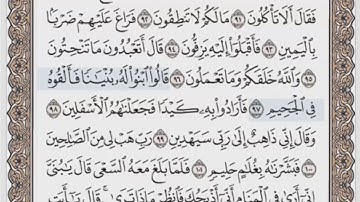 فَقَالَ أَلَا تَأْكُلُونَ ۝٩١ مَا لَكُمْ لَا تَنطِقُونَ ۝٩٢ فَرَاغَ عَلَيْهِمْ ضَرْبًۢا
بِٱلْيَمِينِ ۝٩٣ فَأَقْبَلُوٓا۟ إِلَيْهِ يَزِفُّونَ ۝٩٤ قَالَ أَتَعْبُدُونَ مَا تَنْحِتُونَ
۝٩٥ وَٱللَّهُ خَلَقَكُمْ وَمَا تَعْمَلُونَ ۝٩٦ قَالُوا۟ ٱبْنُوا۟ لَهُۥ بُنْيَـٰنًا فَأَلْقُوهُ
فِى ٱلْجَحِيمِ ۝٩٧ فَأَرَادُوا۟ بِهِۦ كَيْدًا فَجَعَلْنَـٰهُمُ ٱلْأَسْفَلِينَ ۝٩٨
وَقَالَ إِنِّى ذَاهِبٌ إِلَىٰ رَبِّى سَيَهْدِينِ ۝٩٩ رَبِّ هَبْ لِى مِنَ ٱلصَّـٰلِحِينَ
۝١٠٠ فَبَشَّرْنَـٰهُ بِغُلَـٰمٍ حَلِيمٍ ۝١٠١ فَلَمَّا بَلَغَ مَعَهُ ٱلسَّعْىَ قَالَ يَـٰبُنَىَّ
إِنِّىٓ أَرَىٰ فِى ٱلْمَنَامِ أَنِّىٓ أَذْبَحُكَ فَٱنظُرْ مَاذَا تَرَىٰ ۚ قَالَ يَـٰٓأَبَتِ